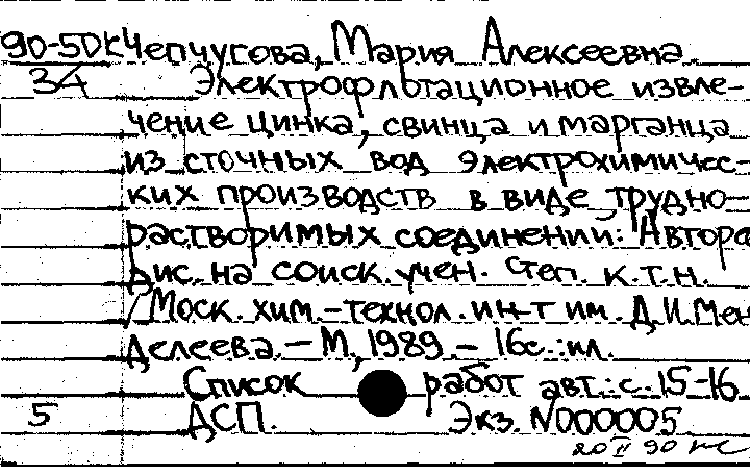 90-5DK Чепчугова, Мария Алексеевна
34 Электрофлотационное извле-
чение цинка, свинца и марганца
из сточных вод электрохимичес-
ких производств в виде трудно-
растворимых соединений: Автореф
дис. на соиск. учен. степ. к.т.н.
/Моск. хим.-технол. ин-т им. Д.И. Мен
делеева. – М, 1989. – 16с.: ил.
Список работ авт.: с. 15-16
5 ДСП. Экз. N000005
20 II 90